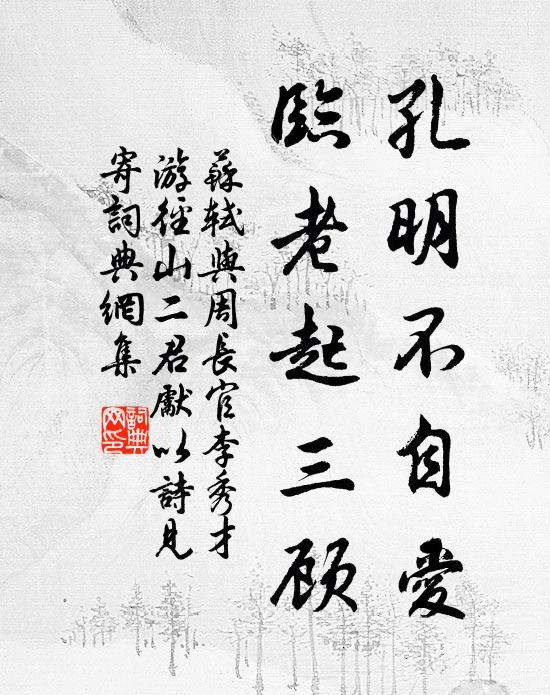 孔明不自愛
臨老起三顾
蘇軾與周長官李秀才
游徑山二君獻以詩見
寄詞典網集
詞典网印